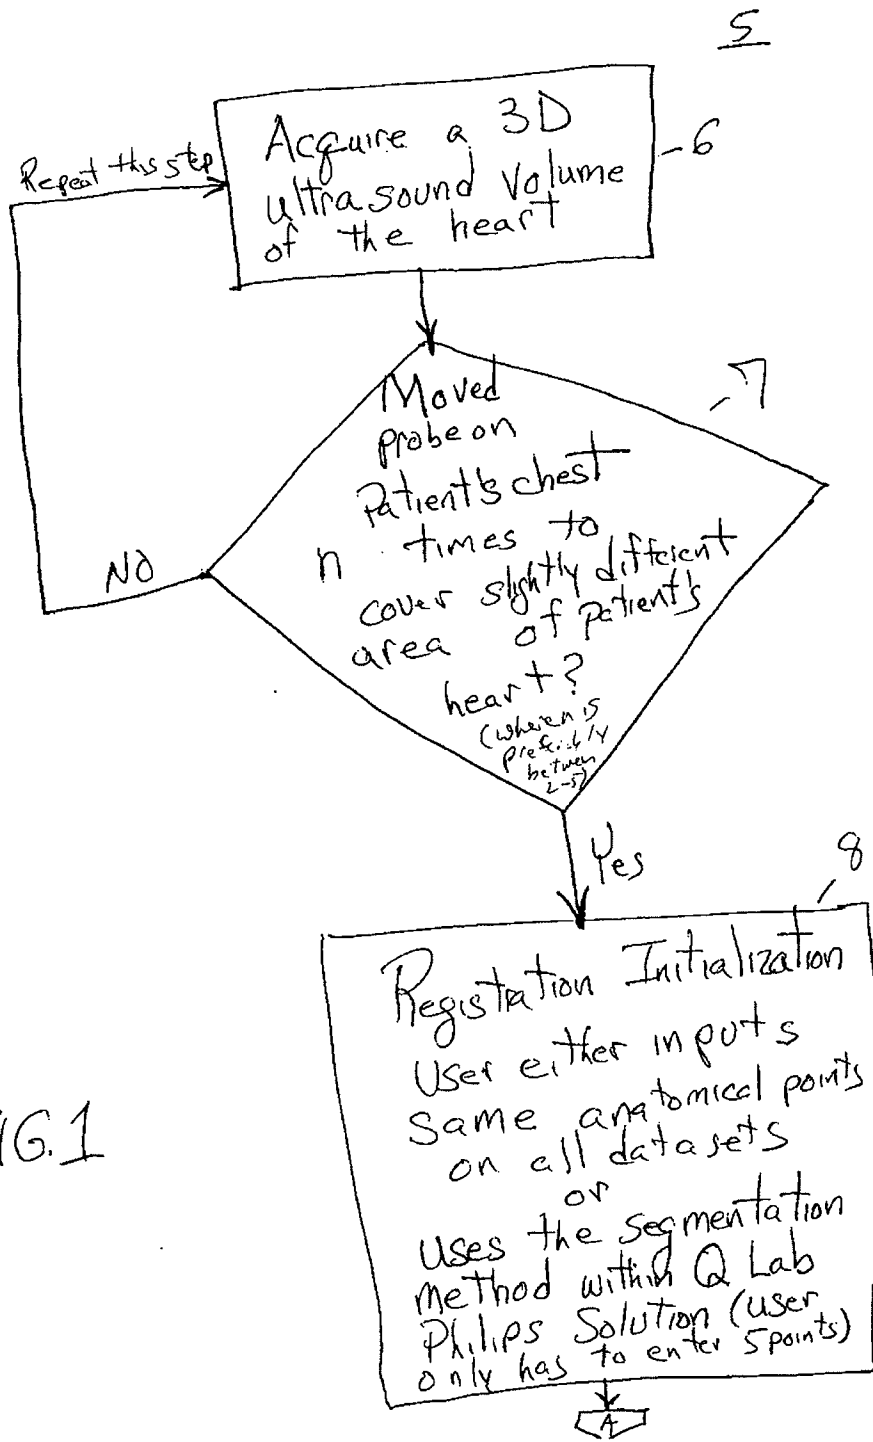 5
Acquire a 3D
ultrasound Volume
of the heart
6
Repeat this step
Moved
probe on
Patient's chest
n times to
cover slightly different
area of patient's
heart?
(where n is
preferably
between
2-5)
7
NO
Yes
8
Registration Initialization
User either inputs
Same anatomical points
on all datasets
or
uses the segmentation
method within Q Lab
Philips Solution (user
only has to enter 5 points)
A
IG.1